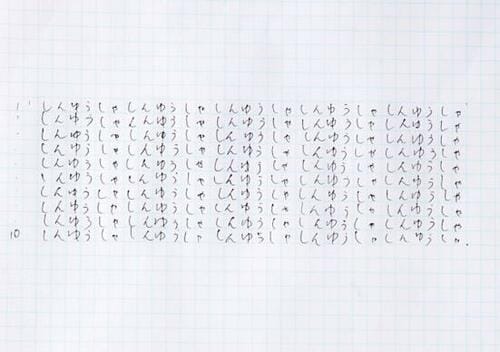 1 しんゆうしゃしんゆうしゃしんゆうしゃしんゆうしゃしんゆうしゃ
しんゆうしゃしんゆうしゃしんゆうしゃしんゆうしゃしんゆうしゃ
しんゆうしゃしんゆうしゃしんゆうしゃしんゆうしゃしんゆうしゃ
しんゆうしゃしんゆうしゃしんゆうしゃしんゆうしゃしんゆうしゃ
しんゆうしゃしんゆうしゃしんゆうしゃしんゆうしゃしんゆうしゃ
しんゆうしゃしんゆうしゃしんゆうしゃしんゆうしゃしんゆうしゃ
しんゆうしゃしんゆうしゃしんゆうしゃしんゆうしゃしんゆうしゃ
しんゆうしゃしんゆうしゃしんゆうしゃしんゆうしゃしんゆうしゃ
しんゆうしゃしんゆうしゃしんゆうしゃしんゆうしゃしんゆうしゃ
10 しんゆうしゃしんゆうしゃしんゆうしゃしんゆうしゃしんゆうしゃ.